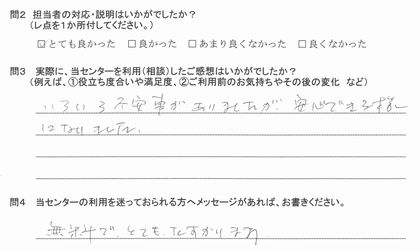 問2 担当者の対応・説明はいかがでしたか?
(レ点を1か所付けてください。)
☑とても良かった □良かった □あまり良くなかった □良くなかった
問3 実際に、当センターを利用(相談)したご感想はいかがでしたか?
(例えば、①役立ち度合いや満足度、②ご利用前のお気持ちやその後の変化 など)
いろいろ不安事がありましたが、安心できる様
になりました。
問4 当センターの利用を迷っておられる方へメッセージがあれば、お書きください。
無料で、とても、たすかります。